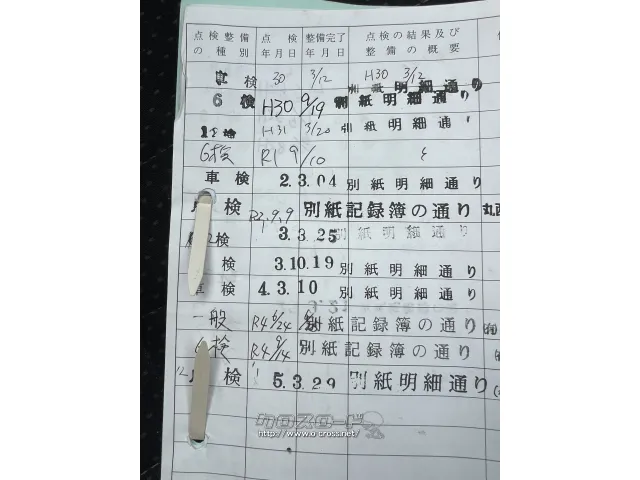 点検整備の種別 点検年月日 整備完了年月日 点検の結果及び整備の概要
車検 30 3/12 H30 3/12
別紙明細通り
6検 H30 9/19 別紙明細通り
H31 3/20 別紙明細通り
6検 R1 9/10 〃
車検 2.3.04 別紙明細通り
点検 R2.9.9 別紙記録簿の通り
検 3.3.25 別紙明細通り
検 3.10.19 別紙明細通り
車検 4.3.10 別紙明細通り
一般 R4 6/24 別紙記録簿の通り
検 R4 9/14 別紙記録簿の通り
12点検 5.3.29 別紙明細通り
クロスロード
http://www.o-cross.net/